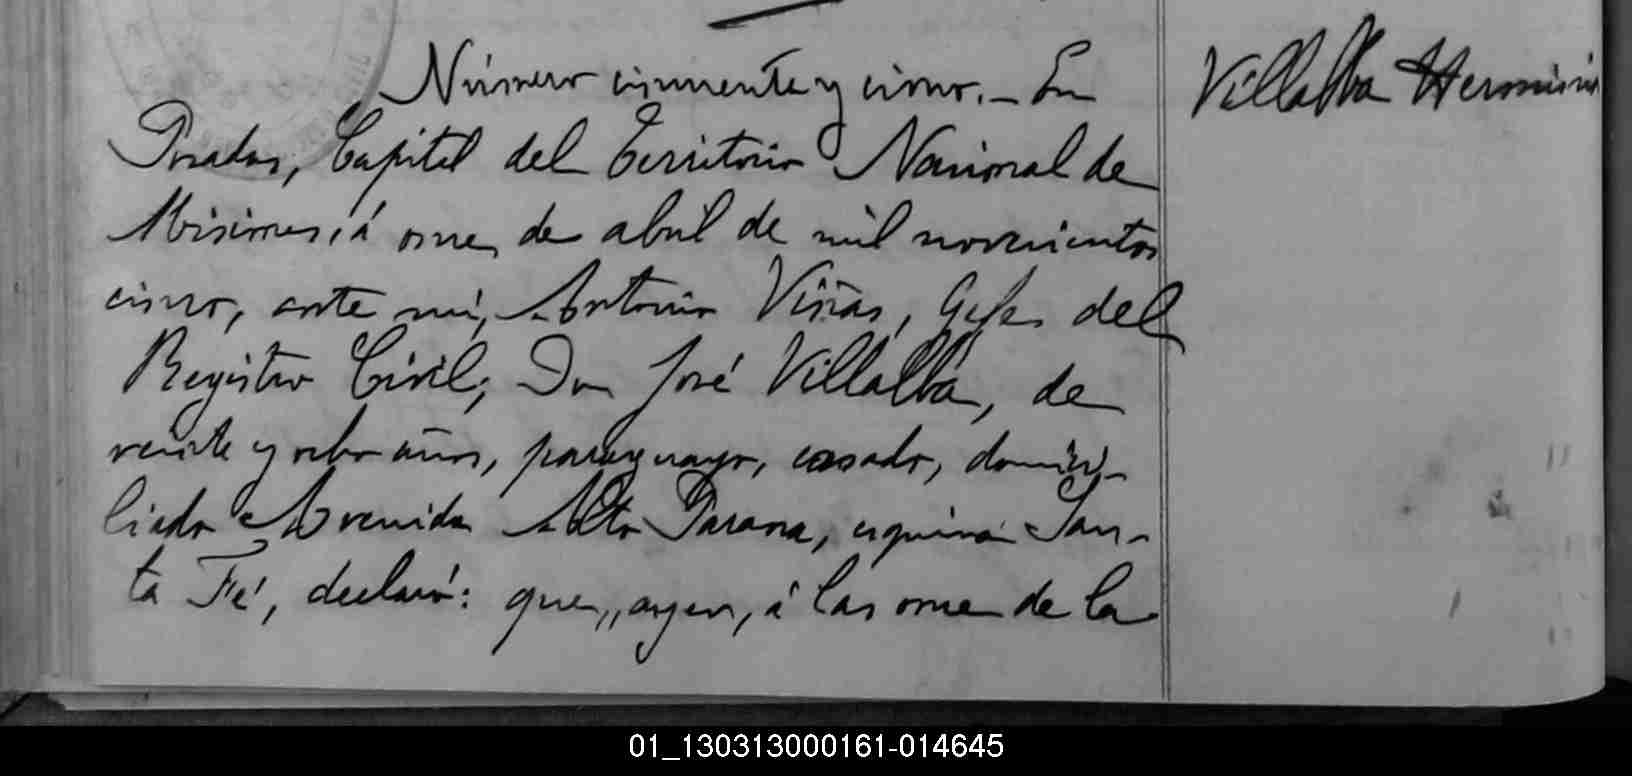 Número cincuenta y cinco. – En
Posadas, Capital del Territorio Nacional de
Misiones, á once de abril de mil novecientos
cinco, ante mí, Antonio Viñas, Gefe del
Registro Civil, Don José Villalba, de
veinte y ocho años, paraguayo, casado, domici-
liado Avenida Alto Parana, esquina San-
ta Fé, declaró: que, ayer, á las once de la
Villalba Herminia
01_130313000161-014645